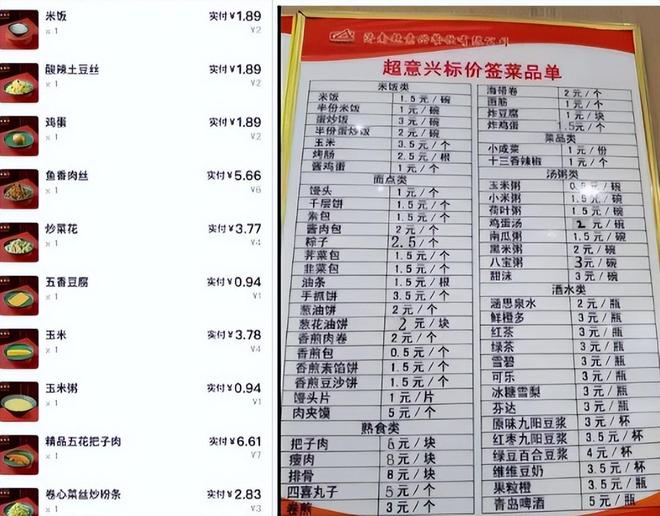 米饭
实付¥1.89
x 1
¥2
酸辣土豆丝
实付¥1.89
x 1
¥2
鸡蛋
实付¥1.89
x 1
¥2
鱼香肉丝
实付¥5.66
x 1
¥6
炒菜花
实付¥3.77
x 1
¥4
五香豆腐
实付¥0.94
x 1
¥1
玉米
实付¥3.78
x 1
¥4
玉米粥
实付¥0.94
x 1
¥1
精品五花把子肉
实付¥6.61
x 1
¥7
卷心菜丝炒粉条
实付¥2.83
x 1
¥3
济南超意兴餐饮有限公司
超意兴标价签菜品单
米饭类
米饭 1.5元/碗
半份米饭 1元/碗
蛋炒饭 3元/碗
半份蛋炒饭 2元/碗
玉米 3.5元/个
烤肠 2.5元/根
酱鸡蛋 1元/个
面点类
馒头 1元/个
千层饼 1.5元/个
素包 1.5元/个
酱肉包 2元/个
粽子 2.5/个
荠菜包 1.5元/个
韭菜包 1.5元/个
油条 1.5元/根
手抓饼 3.5元/个
葱油饼 2元/个
葱花油饼 2元/块
香煎肉卷 2元/个
香煎包 0.5元/个
香煎素馅饼 1.5元/个
香煎豆沙饼 1.5元/个
馒头片 1元/片
肉夹馍 5元/个
熟食类
把子肉 6元/块
瘦肉 8元/块
排骨 8元/块
四喜丸子 5元/个
卷煎 3元/个
海带卷 2元/个
面筋 1元/个
炸豆腐 1元/块
炸鸡蛋 1.5元/个
菜品类
小咸菜 1元/份
十三香辣椒 1元/个
汤粥类
玉米粥 元/碗
小米粥 1.5元/碗
荷叶粥 1.5元/碗
鸡蛋汤 2元/碗
南瓜粥 1.5元/碗
黑米粥 2元/碗
八宝粥 3元/碗
甜沫 3元/碗
酒水类
涵思泉水 2元/瓶
鲜橙多 3元/瓶
红茶 3元/瓶
绿茶 3元/瓶
雪碧 3元/瓶
可乐 3元/瓶
冰糖雪梨 3元/瓶
芬达 3元/瓶
原味九阳豆浆 3元/杯
红枣九阳豆浆 3.5元/杯
绿豆百合豆浆 4元/杯
维维豆奶 3.5元/杯
果粒橙 3.5元/瓶
青岛啤酒 5元/瓶